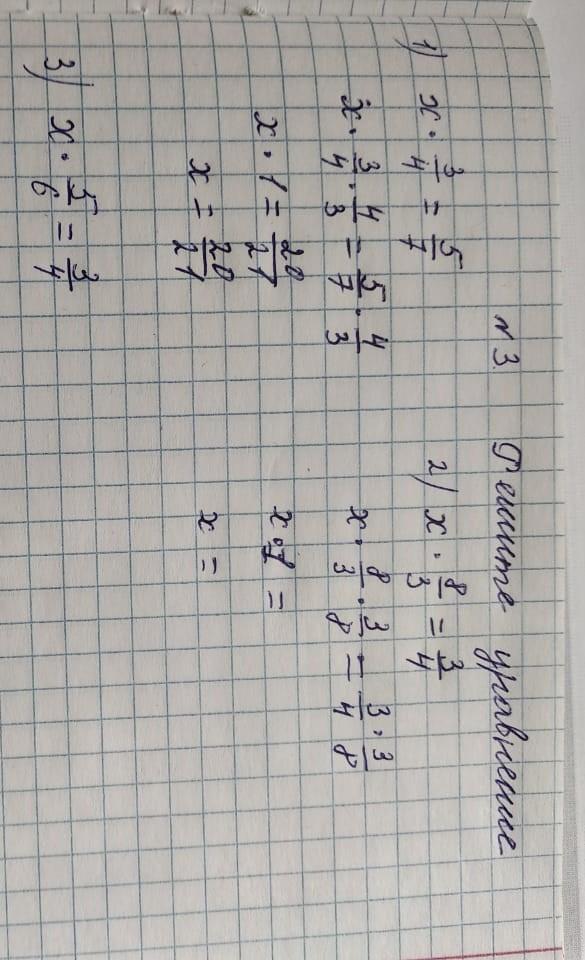 №3. Решите уравнение
1) x · 3/4 = 5/7
x · 3/4 · 4/3 = 5/7 · 4/3
x · 1 = 20/21
x = 20/21
2) x · 8/3 = 3/4
x · 8/3 · 3/8 = 3/4 · 3/8
x · 1 =
x =
3) x · 5/6 = 3/4